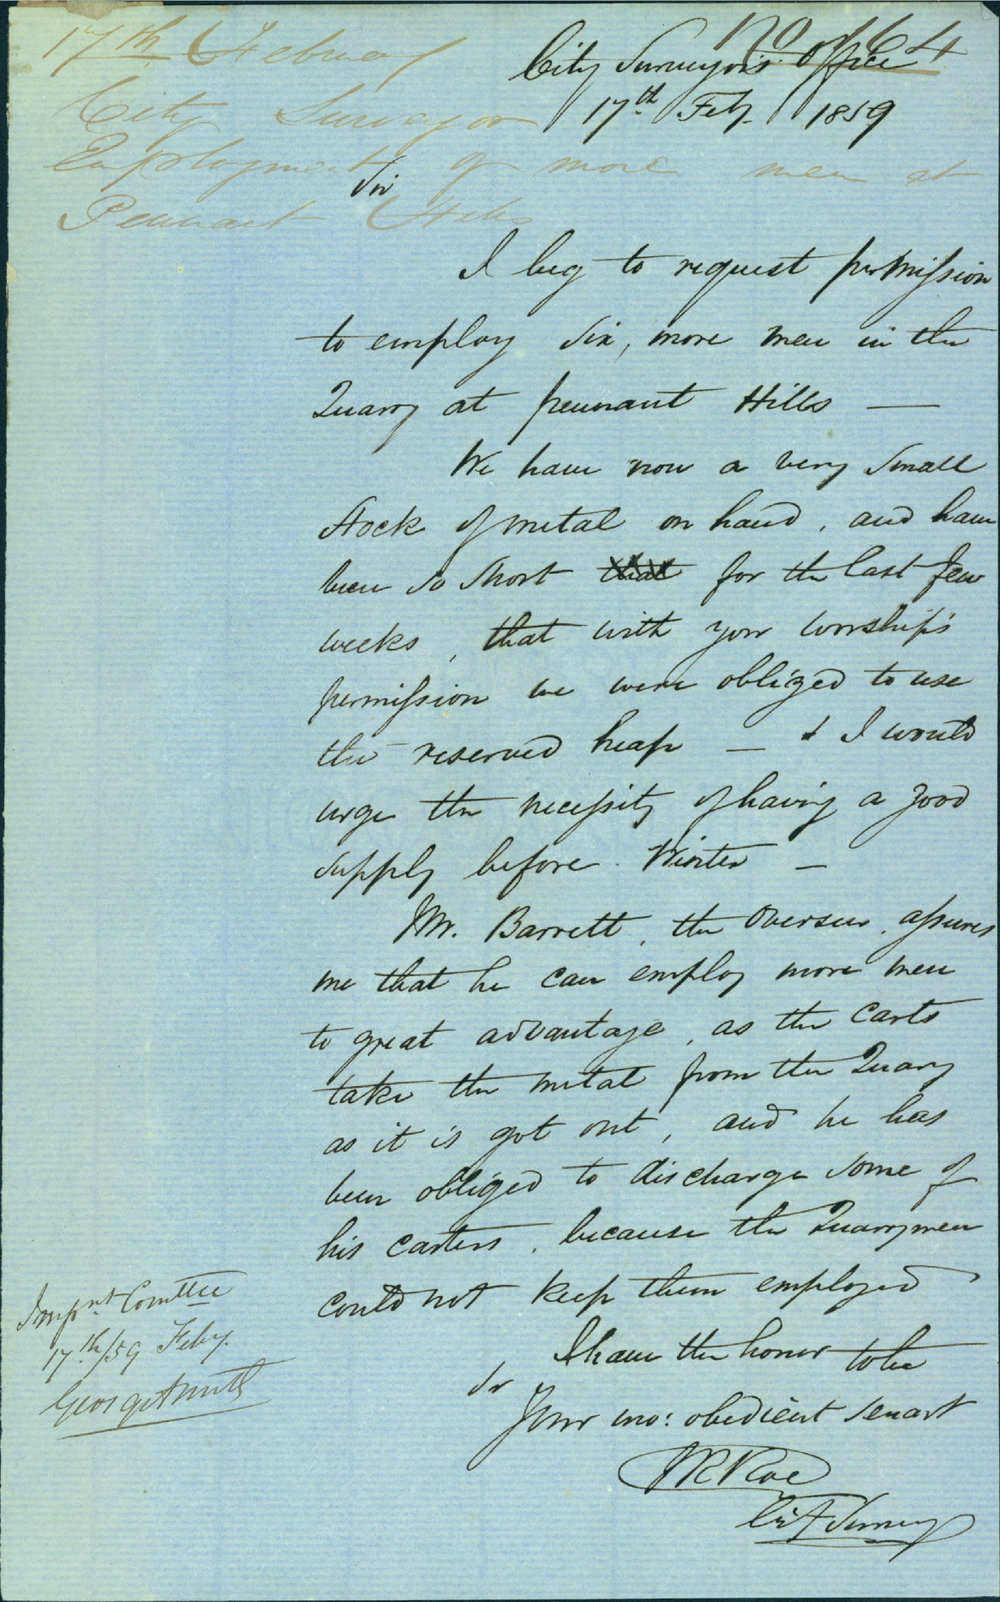 17th February
No 164
City Surveyor's Office
City Surveyor
17th Feby. 1859
Employment of more men at
Sir
Pennant Hills
I beg to request permission
to employ six, more men in the
Quarry at pennant Hills —
We have now a very small
stock of metal on hand, and have
been so short that for the last few
weeks, that with your worship's
permission we were obliged to use
the reserved heap — & I would
urge the necessity of having a good
supply before Winter —
Mr. Barrett, the Overseer, assures
me that he can employ more men
to great advantage, as the carts
take the metal from the Quarry
as it is got out, and he has
been obliged to discharge some of
his carters, because the Quarrymen
could not keep them employed
I have the honor to be
Sir
Your mo: obedient servant
City Surveyor
Impnt Comttee
17th/59 Feby.
George Smith